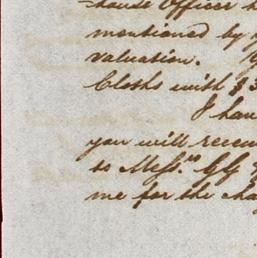 house Officer h
mentioned by
valuation.
Cloths with $3
I hav
you will receiv
to Mess.rs GG
me for the cha